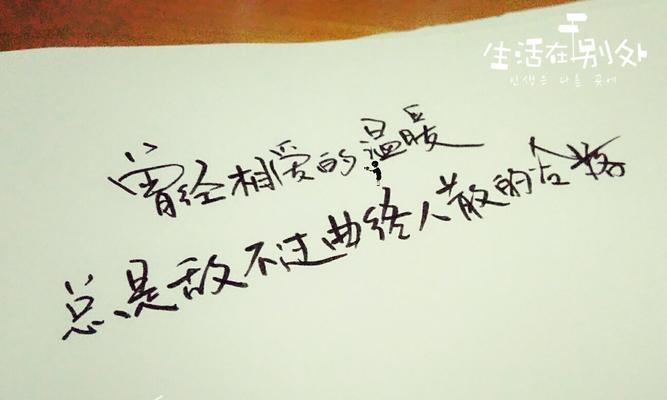 生活在别处
인생은 다른 곳에
曾经相爱的温暖
总是敌不过曲终人散的合